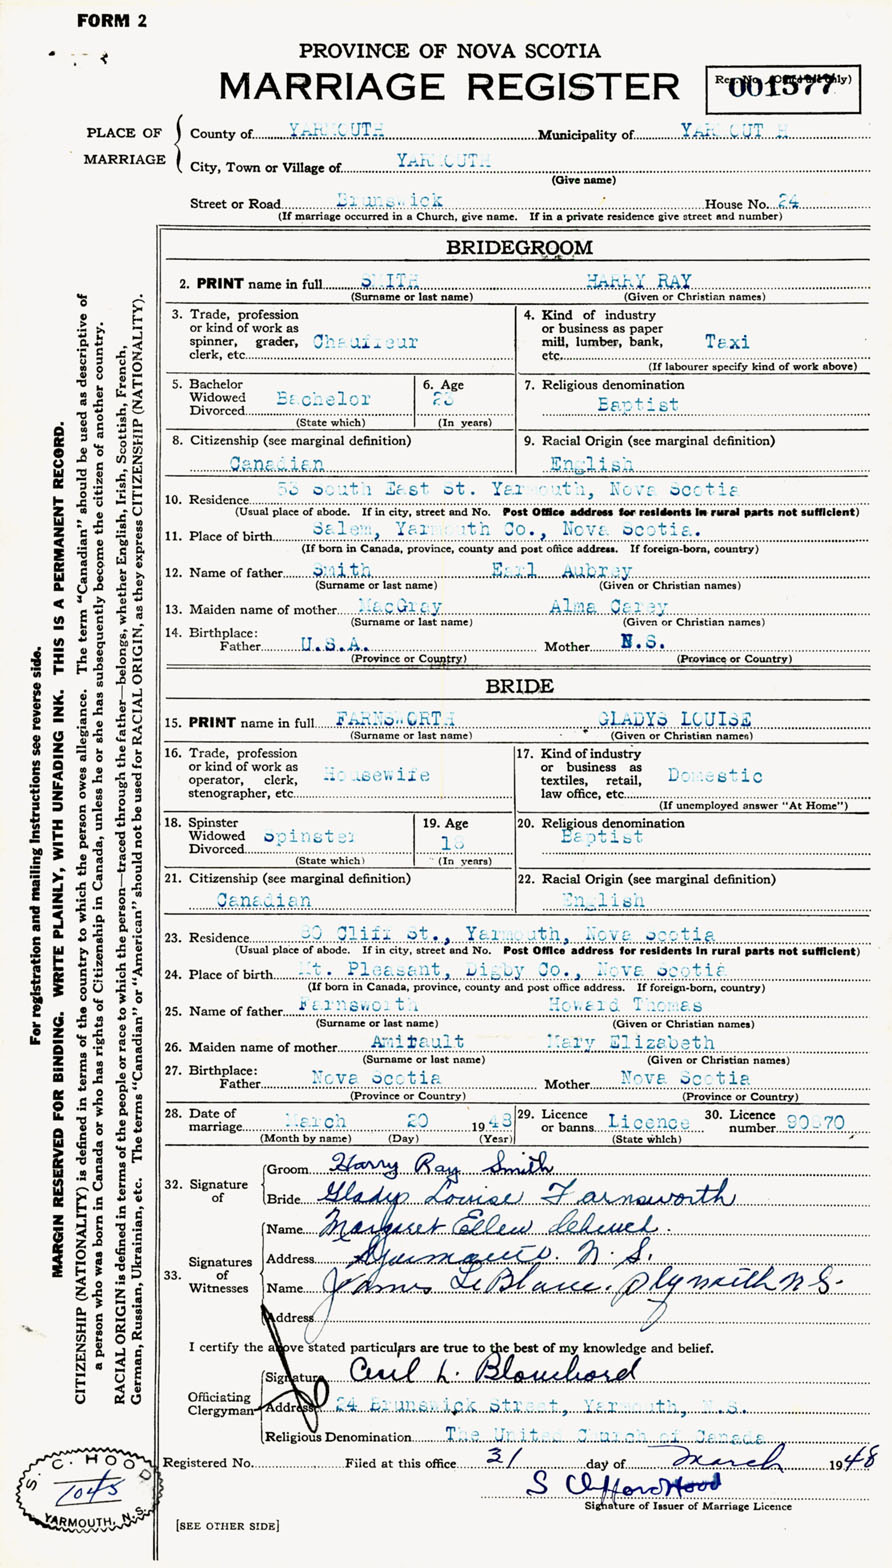 FORM 2
PROVINCE OF NOVA SCOTIA
MARRIAGE REGISTER
Reg. No. (Office use only)
001577
PLACE OF MARRIAGE
County of YARMOUTH Municipality of YARMOUTH
City, Town or Village of YARMOUTH
(Give name)
Street or Road Brunswick House No. 24
(If marriage occurred in a Church, give name. If in a private residence give street and number)
BRIDEGROOM
2. PRINT name in full SMITH HARRY RAY
(Surname or last name) (Given or Christian names)
3. Trade, profession or kind of work as spinner, grader, clerk, etc. Chauffeur
4. Kind of industry or business as paper mill, lumber, bank, etc. Taxi
(If labourer specify kind of work above)
5. Bachelor Widowed Divorced Bachelor
(State which)
6. Age 23
(In years)
7. Religious denomination
Baptist
8. Citizenship (see marginal definition)
Canadian
9. Racial Origin (see marginal definition)
English
10. Residence 53 South East St. Yarmouth, Nova Scotia
(Usual place of abode. If in city, street and No. Post Office address for residents in rural parts not sufficient)
11. Place of birth Salem, Yarmouth Co., Nova Scotia.
(If born in Canada, province, county and post office address. If foreign-born, country)
12. Name of father Smith Earl Aubrey
(Surname or last name) (Given or Christian names)
13. Maiden name of mother MacGray Alma Carey
(Surname or last name) (Given or Christian names)
14. Birthplace:
Father U.S.A. Mother N.S.
(Province or Country) (Province or Country)
BRIDE
15. PRINT name in full FARNSWORTH GLADYS LOUISE
(Surname or last name) (Given or Christian names)
16. Trade, profession or kind of work as operator, clerk, stenographer, etc. Housewife
17. Kind of industry or business as textiles, retail, law office, etc. Domestic
(If unemployed answer "At Home")
18. Spinster Widowed Divorced Spinster
(State which)
19. Age 18
(In years)
20. Religious denomination
Baptist
21. Citizenship (see marginal definition)
Canadian
22. Racial Origin (see marginal definition)
English
23. Residence 80 Cliff St., Yarmouth, Nova Scotia
(Usual place of abode. If in city, street and No. Post Office address for residents in rural parts not sufficient)
24. Place of birth Mt. Pleasant, Digby Co., Nova Scotia
(If born in Canada, province, county and post office address. If foreign-born, country)
25. Name of father Farnsworth Howard Thomas
(Surname or last name) (Given or Christian names)
26. Maiden name of mother Amirault Mary Elizabeth
(Surname or last name) (Given or Christian names)
27. Birthplace:
Father Nova Scotia Mother Nova Scotia
(Province or Country) (Province or Country)
28. Date of marriage March 20 1948
(Month by name) (Day) (Year)
29. Licence or banns Licence
(State which)
30. Licence number
32. Signature of
Groom Harry Ray Smith
Bride Gladys Louise Farnsworth
33. Signatures of Witnesses
Name Margaret Ellen
Address N. S.
Name James LeBlanc. Plymouth N S.
Address
I certify the above stated particulars are true to the best of my knowledge and belief.
Officiating Clergyman
Signature Cecil L. Blanchard
Address 24 Brunswick Street, Yarmouth, N.S.
Religious Denomination The United Church of Canada
Registered No. Filed at this office 31 day of March 1948
S Clifford Hood
Signature of Issuer of Marriage Licence
[SEE OTHER SIDE]
S. C. HOOD
1048
YARMOUTH, N.S.
For registration and mailing instructions see reverse side.
MARGIN RESERVED FOR BINDING. WRITE PLAINLY, WITH UNFADING INK. THIS IS A PERMANENT RECORD.
CITIZENSHIP (NATIONALITY) is defined in terms of the country to which the person owes allegiance. The term "Canadian" should be used as descriptive of
a person who was born in Canada or who has rights of Citizenship in Canada, unless he or she has subsequently become the citizen of another country.
RACIAL ORIGIN is defined in terms of the people or race to which the person—traced through the father—belongs, whether English, Irish, Scottish, French,
German, Russian, Ukrainian, etc. The terms "Canadian" or "American" should not be used for RACIAL ORIGIN, as they express CITIZENSHIP (NATIONALITY).